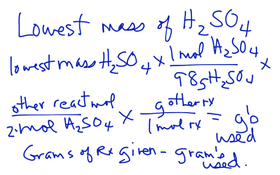 Lowest mass of H₂SO₄
lowest mass H₂SO₄ × 1 mol H₂SO₄ / 98g H₂SO₄ ×
other react mol / 2 mol H₂SO₄ × g other rx / 1 mol rx = g's used
Grams of Rx given - gram's used.